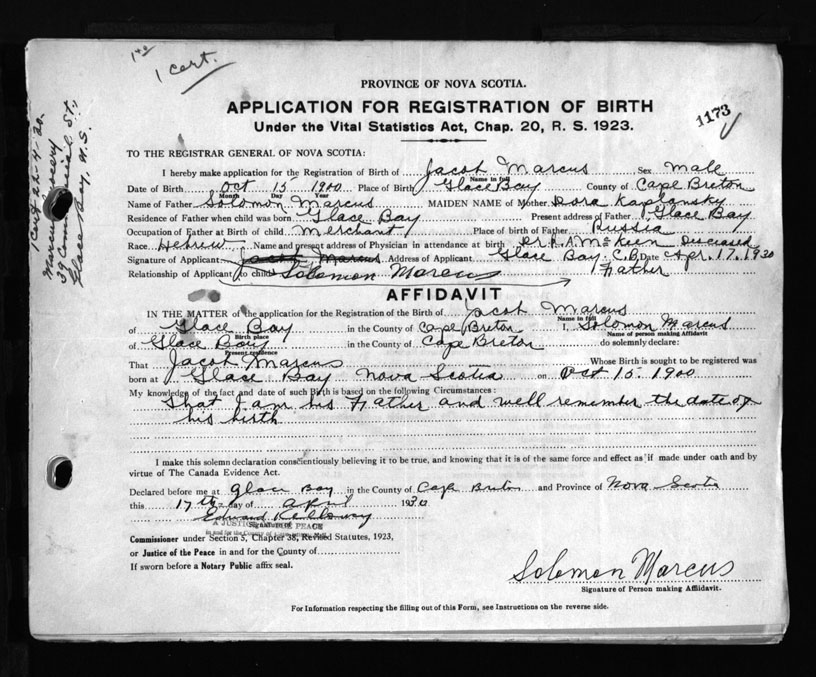 1 cert.
1 Cert 22-4-30.
Marcus Grocery
39 Commercial St.,
Glace Bay, N.S.
PROVINCE OF NOVA SCOTIA.
APPLICATION FOR REGISTRATION OF BIRTH
1173
Under the Vital Statistics Act, Chap. 20, R. S. 1923.
TO THE REGISTRAR GENERAL OF NOVA SCOTIA:
I hereby make application for the Registration of Birth of Jacob Marcus Sex Male
Name in full
Date of Birth Oct 15 1900 Place of Birth Glace Bay County of Cape Breton
Month Day Year
Name of Father Solomon Marcus MAIDEN NAME of Mother Dora Kaplansky
Residence of Father when child was born Glace Bay Present address of Father Glace Bay
Occupation of Father at Birth of child Merchant Place of birth of Father Russia
Race Hebrew Name and present address of Physician in attendance at birth Dr. R. A. McKeen Deceased
Signature of Applicant Jacob Marcus Address of Applicant Glace Bay. C.B. Date Apr. 17. 1930
Relationship of Applicant to child Solomon Marcus Father
AFFIDAVIT
IN THE MATTER of the application for the Registration of the Birth of Jacob Marcus
Name in full
of Glace Bay in the County of Cape Breton I, Solomon Marcus
Birth place Name of person making Affidavit
of Glace Bay in the County of Cape Breton do solemnly declare:
Present residence
That Jacob Marcus Whose Birth is sought to be registered was
born at Glace Bay Nova Scotia on Oct 15. 1900
My knowledge of the fact and date of such Birth is based on the following Circumstances:
That I am his Father and well remember the date of
his birth
I make this solemn declaration conscientiously believing it to be true, and knowing that it is of the same force and effect as if made under oath and by
virtue of The Canada Evidence Act.
Declared before me at Glace Bay in the County of Cape Breton and Province of Nova Scotia
this 17th day of April 1930
Edward Kelloway
A JUSTICE OF THE PEACE
Commissioner under Section 5, Chapter 38, Revised Statutes, 1923,
or Justice of the Peace in and for the County of
If sworn before a Notary Public affix seal.
Solomon Marcus
Signature of Person making Affidavit.
For Information respecting the filling out of this Form, see Instructions on the reverse side.